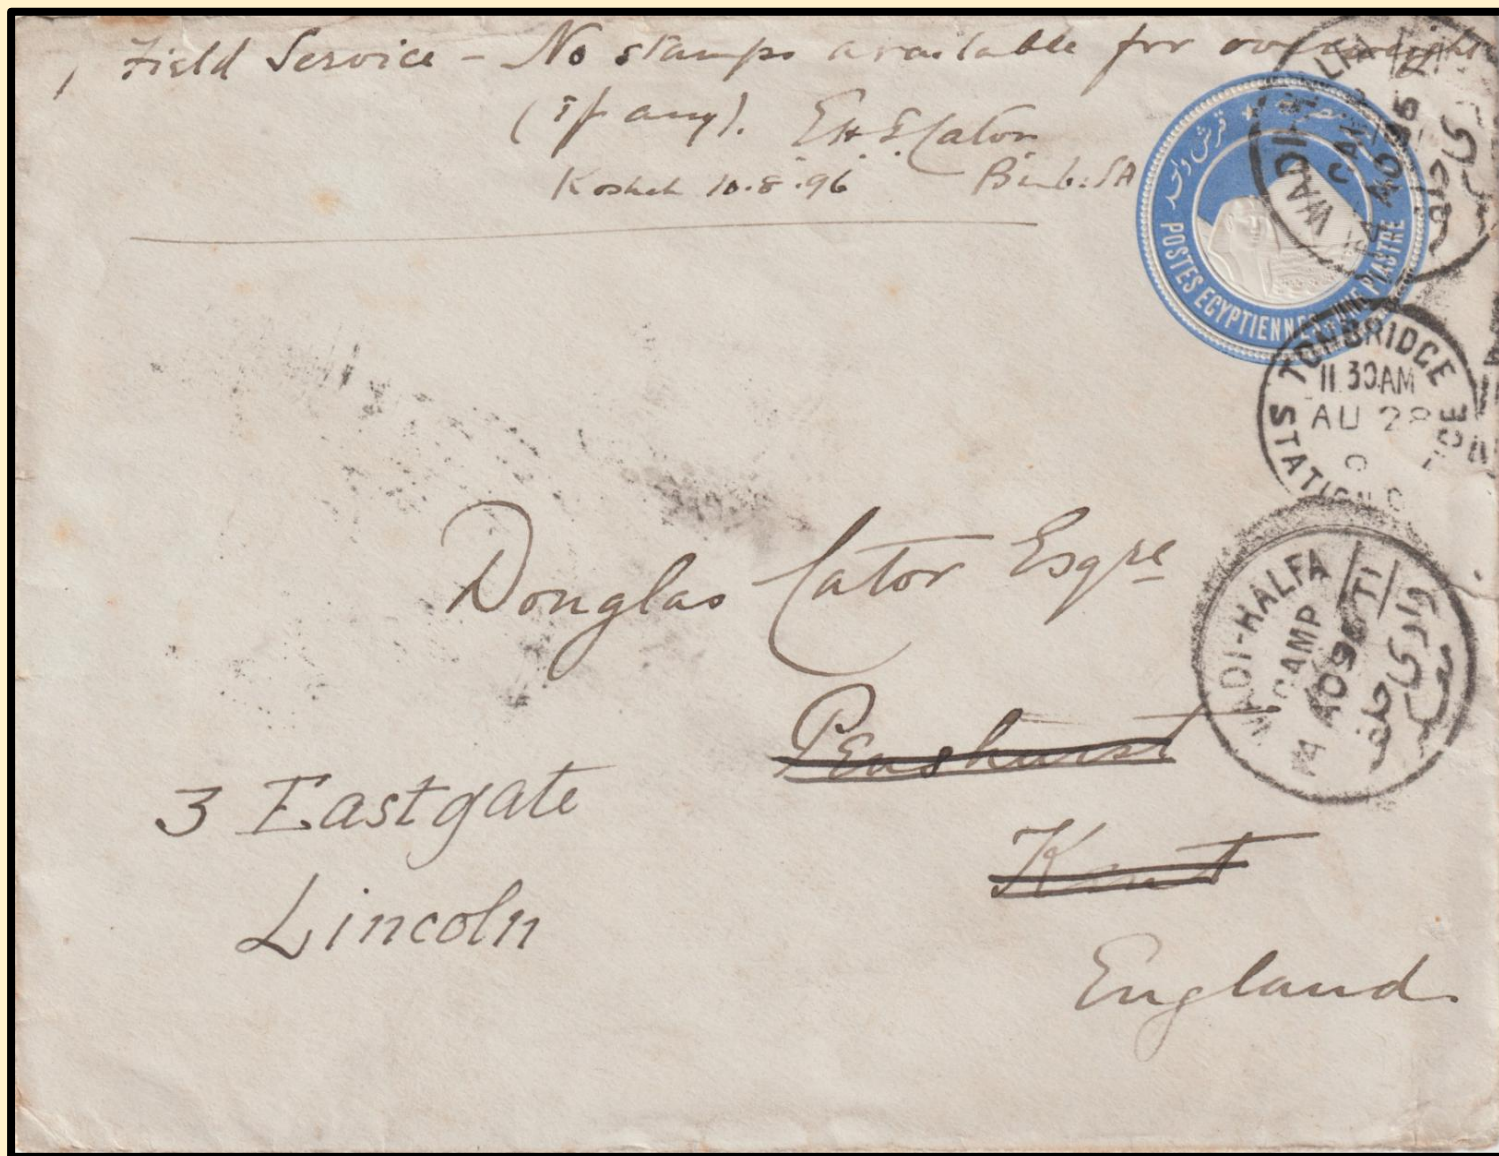 Field Service - No stamps available for overweight
(if any). E H S Cator
Kosheh 10.8.96 Bimb: SA
قرش واحد
POSTES EGYPTIENNES UNE PIASTRE
WADI-HALFA
CAMP
TONBRIDGE STATION OFFICE
11 30AM
AU 28
WADI-HALFA
CAMP
14 AO 96 TI
وادى حلفا
Douglas Cator Esqre
Penshurst
Kent
England
3 Eastgate
Lincoln